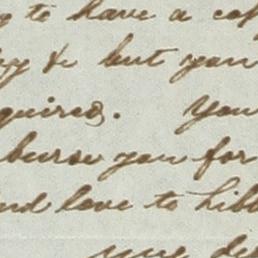 to have a cop
& but you
quired. You
burse you for
nd love to Libb